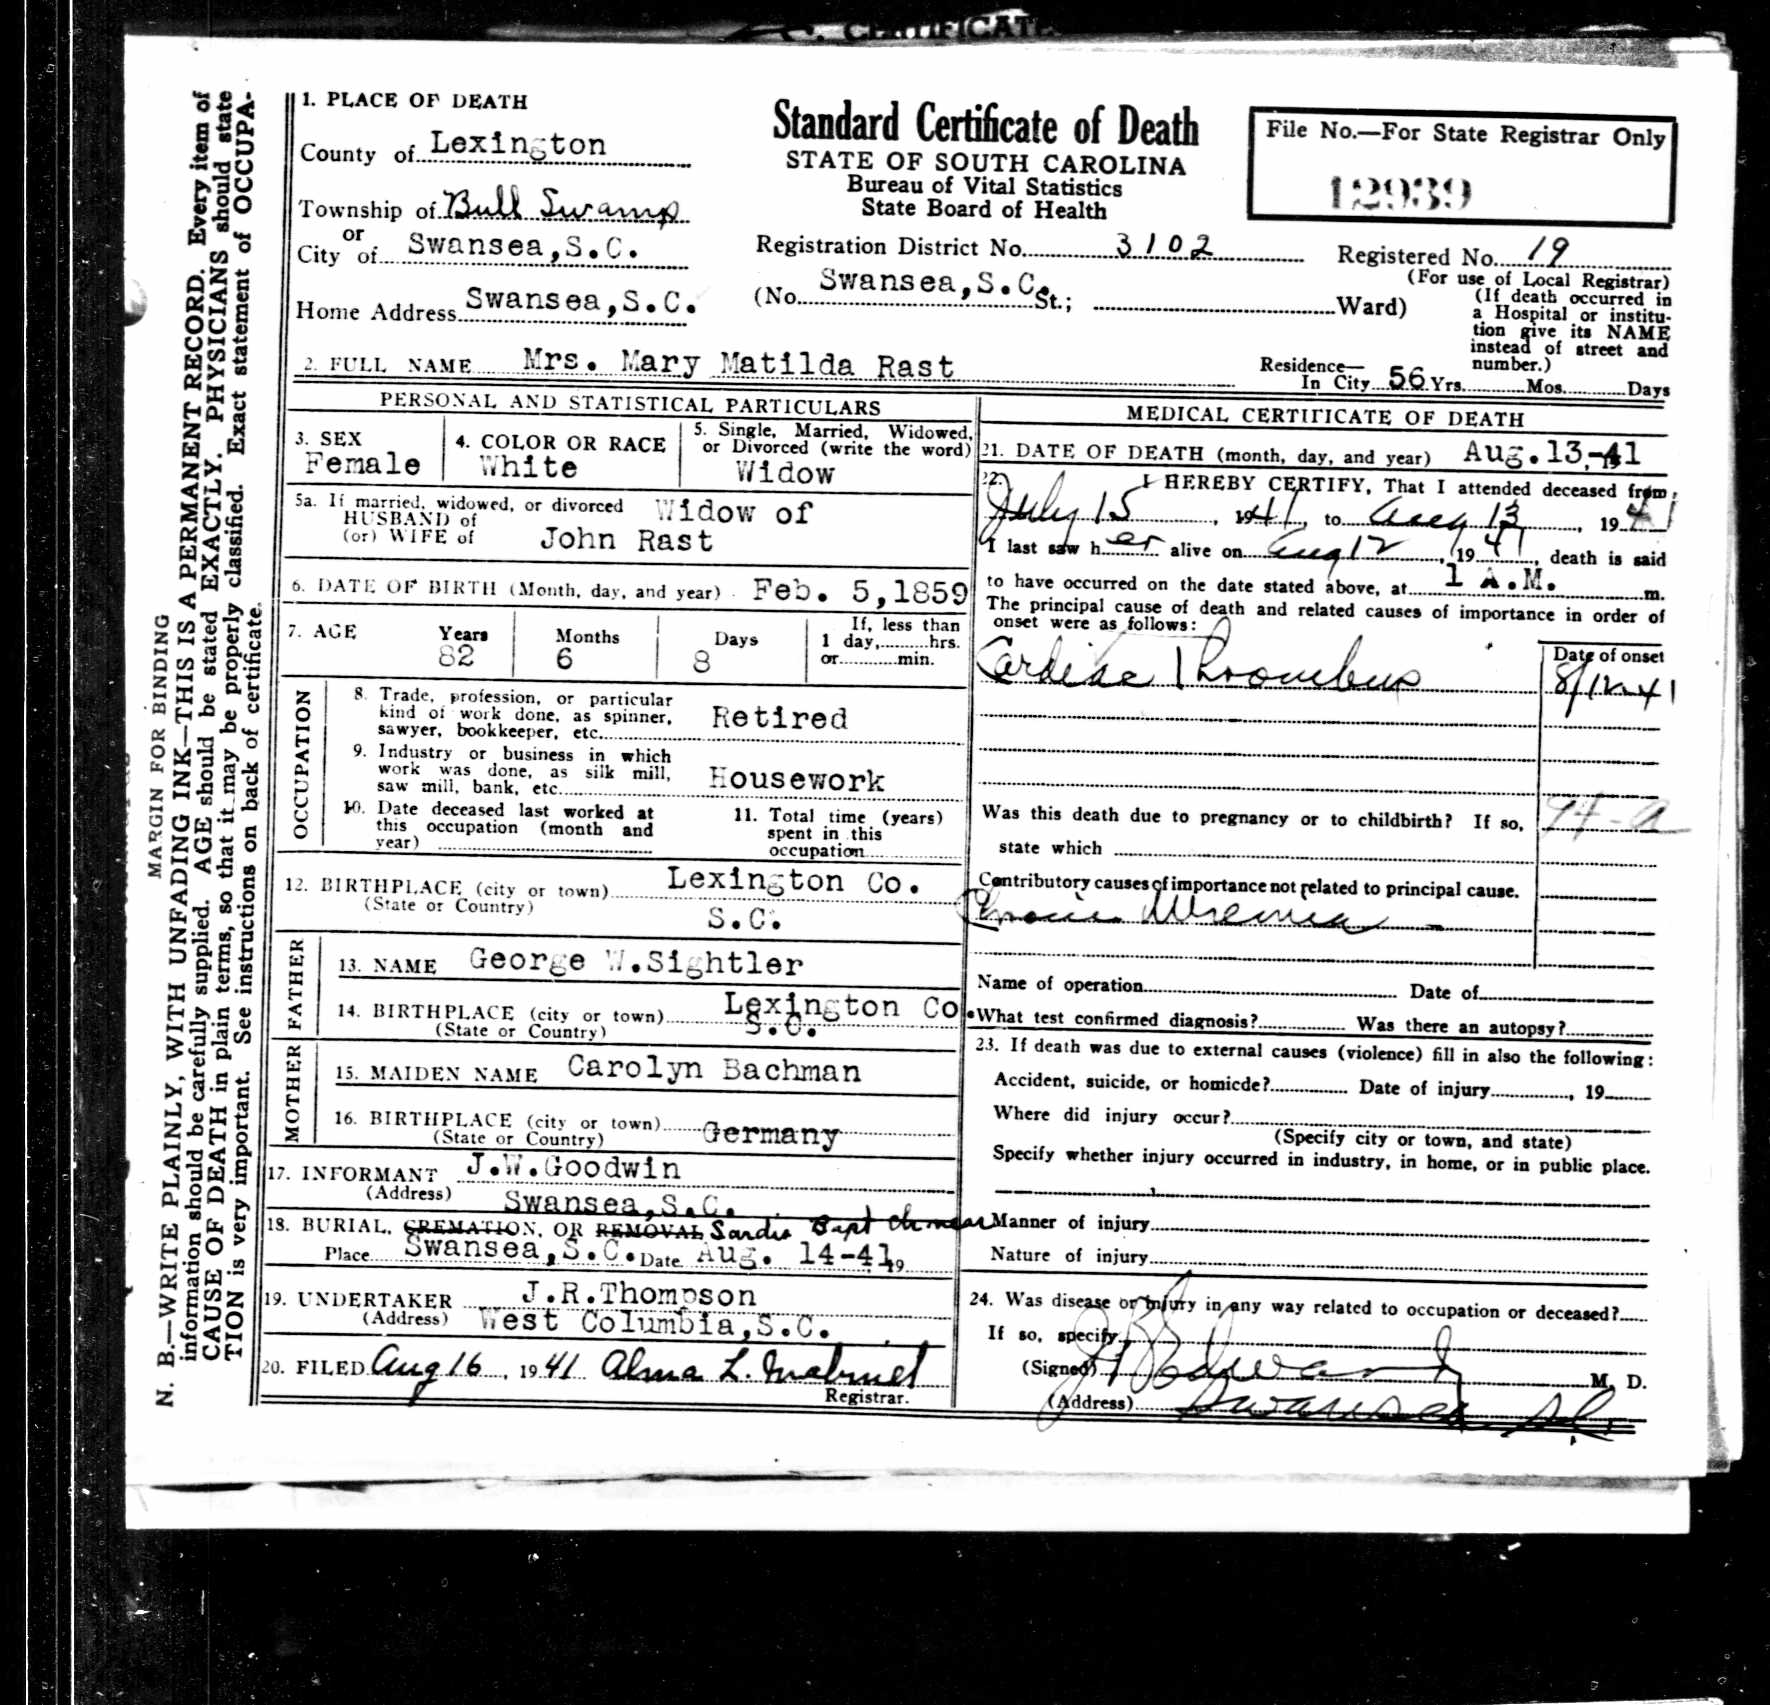 N. B.—WRITE PLAINLY, WITH UNFADING INK—THIS IS A PERMANENT RECORD. Every item of
information should be carefully supplied. AGE should be stated EXACTLY. PHYSICIANS should state
CAUSE OF DEATH in plain terms, so that it may be properly classified. Exact statement of OCCUPA-
TION is very important. See instructions on back of certificate.
MARGIN FOR BINDING
1. PLACE OF DEATH
County of Lexington
Township of Bull Swamp
or
City of Swansea,S.C.
Home Address Swansea,S.C.
Standard Certificate of Death
STATE OF SOUTH CAROLINA
Bureau of Vital Statistics
State Board of Health
File No.—For State Registrar Only
12939
Registration District No. 3102
Registered No. 19
(For use of Local Registrar)
(No. Swansea,S.C. St.; Ward)
(If death occurred in
a Hospital or institu-
tion give its NAME
instead of street and
number.)
2. FULL NAME Mrs. Mary Matilda Rast
Residence—
In City 56 Yrs. Mos. Days
PERSONAL AND STATISTICAL PARTICULARS
3. SEX
Female
4. COLOR OR RACE
White
5. Single, Married, Widowed,
or Divorced (write the word)
Widow
5a. If married, widowed, or divorced Widow of
HUSBAND of
(or) WIFE of John Rast
6. DATE OF BIRTH (Month, day, and year) Feb. 5,1859
7. AGE Years Months Days If, less than
82 6 8 1 day, hrs.
or min.
OCCUPATION
8. Trade, profession, or particular
kind of work done, as spinner,
sawyer, bookkeeper, etc. Retired
9. Industry or business in which
work was done, as silk mill,
saw mill, bank, etc. Housework
10. Date deceased last worked at
this occupation (month and
year)
11. Total time (years)
spent in this
occupation
12. BIRTHPLACE (city or town) Lexington Co.
(State or Country) S.C.
FATHER
13. NAME George W.Sightler
14. BIRTHPLACE (city or town) Lexington Co.
(State or Country) S.C.
MOTHER
15. MAIDEN NAME Carolyn Bachman
16. BIRTHPLACE (city or town) Germany
(State or Country)
17. INFORMANT J.W.Goodwin
(Address) Swansea,S.C.
18. BURIAL, CREMATION, OR REMOVAL Sardis Bapt Ch near
Place Swansea,S.C. Date Aug. 14-41 19
19. UNDERTAKER J.R.Thompson
(Address) West Columbia,S.C.
20. FILED Aug 16, 1941 Alma L.
Registrar.
MEDICAL CERTIFICATE OF DEATH
21. DATE OF DEATH (month, day, and year) Aug.13,-41
22. I HEREBY CERTIFY, That I attended deceased from
July 15, 1941, to Aug 13, 1941
I last saw her alive on Aug 12, 1941, death is said
to have occurred on the date stated above, at 1 A.M. m.
The principal cause of death and related causes of importance in order of
onset were as follows:
Date of onset
Cardiac Thrombus 8/12-41
Was this death due to pregnancy or to childbirth? If so, 94-a
state which
Contributory causes of importance not related to principal cause.
Chronic Uremia
Name of operation Date of
What test confirmed diagnosis? Was there an autopsy?
23. If death was due to external causes (violence) fill in also the following:
Accident, suicide, or homicde? Date of injury, 19
Where did injury occur?
(Specify city or town, and state)
Specify whether injury occurred in industry, in home, or in public place.
Manner of injury
Nature of injury
24. Was disease or injury in any way related to occupation or deceased?
If so, specify
(Signed) M. D.
(Address) Swansea SC.